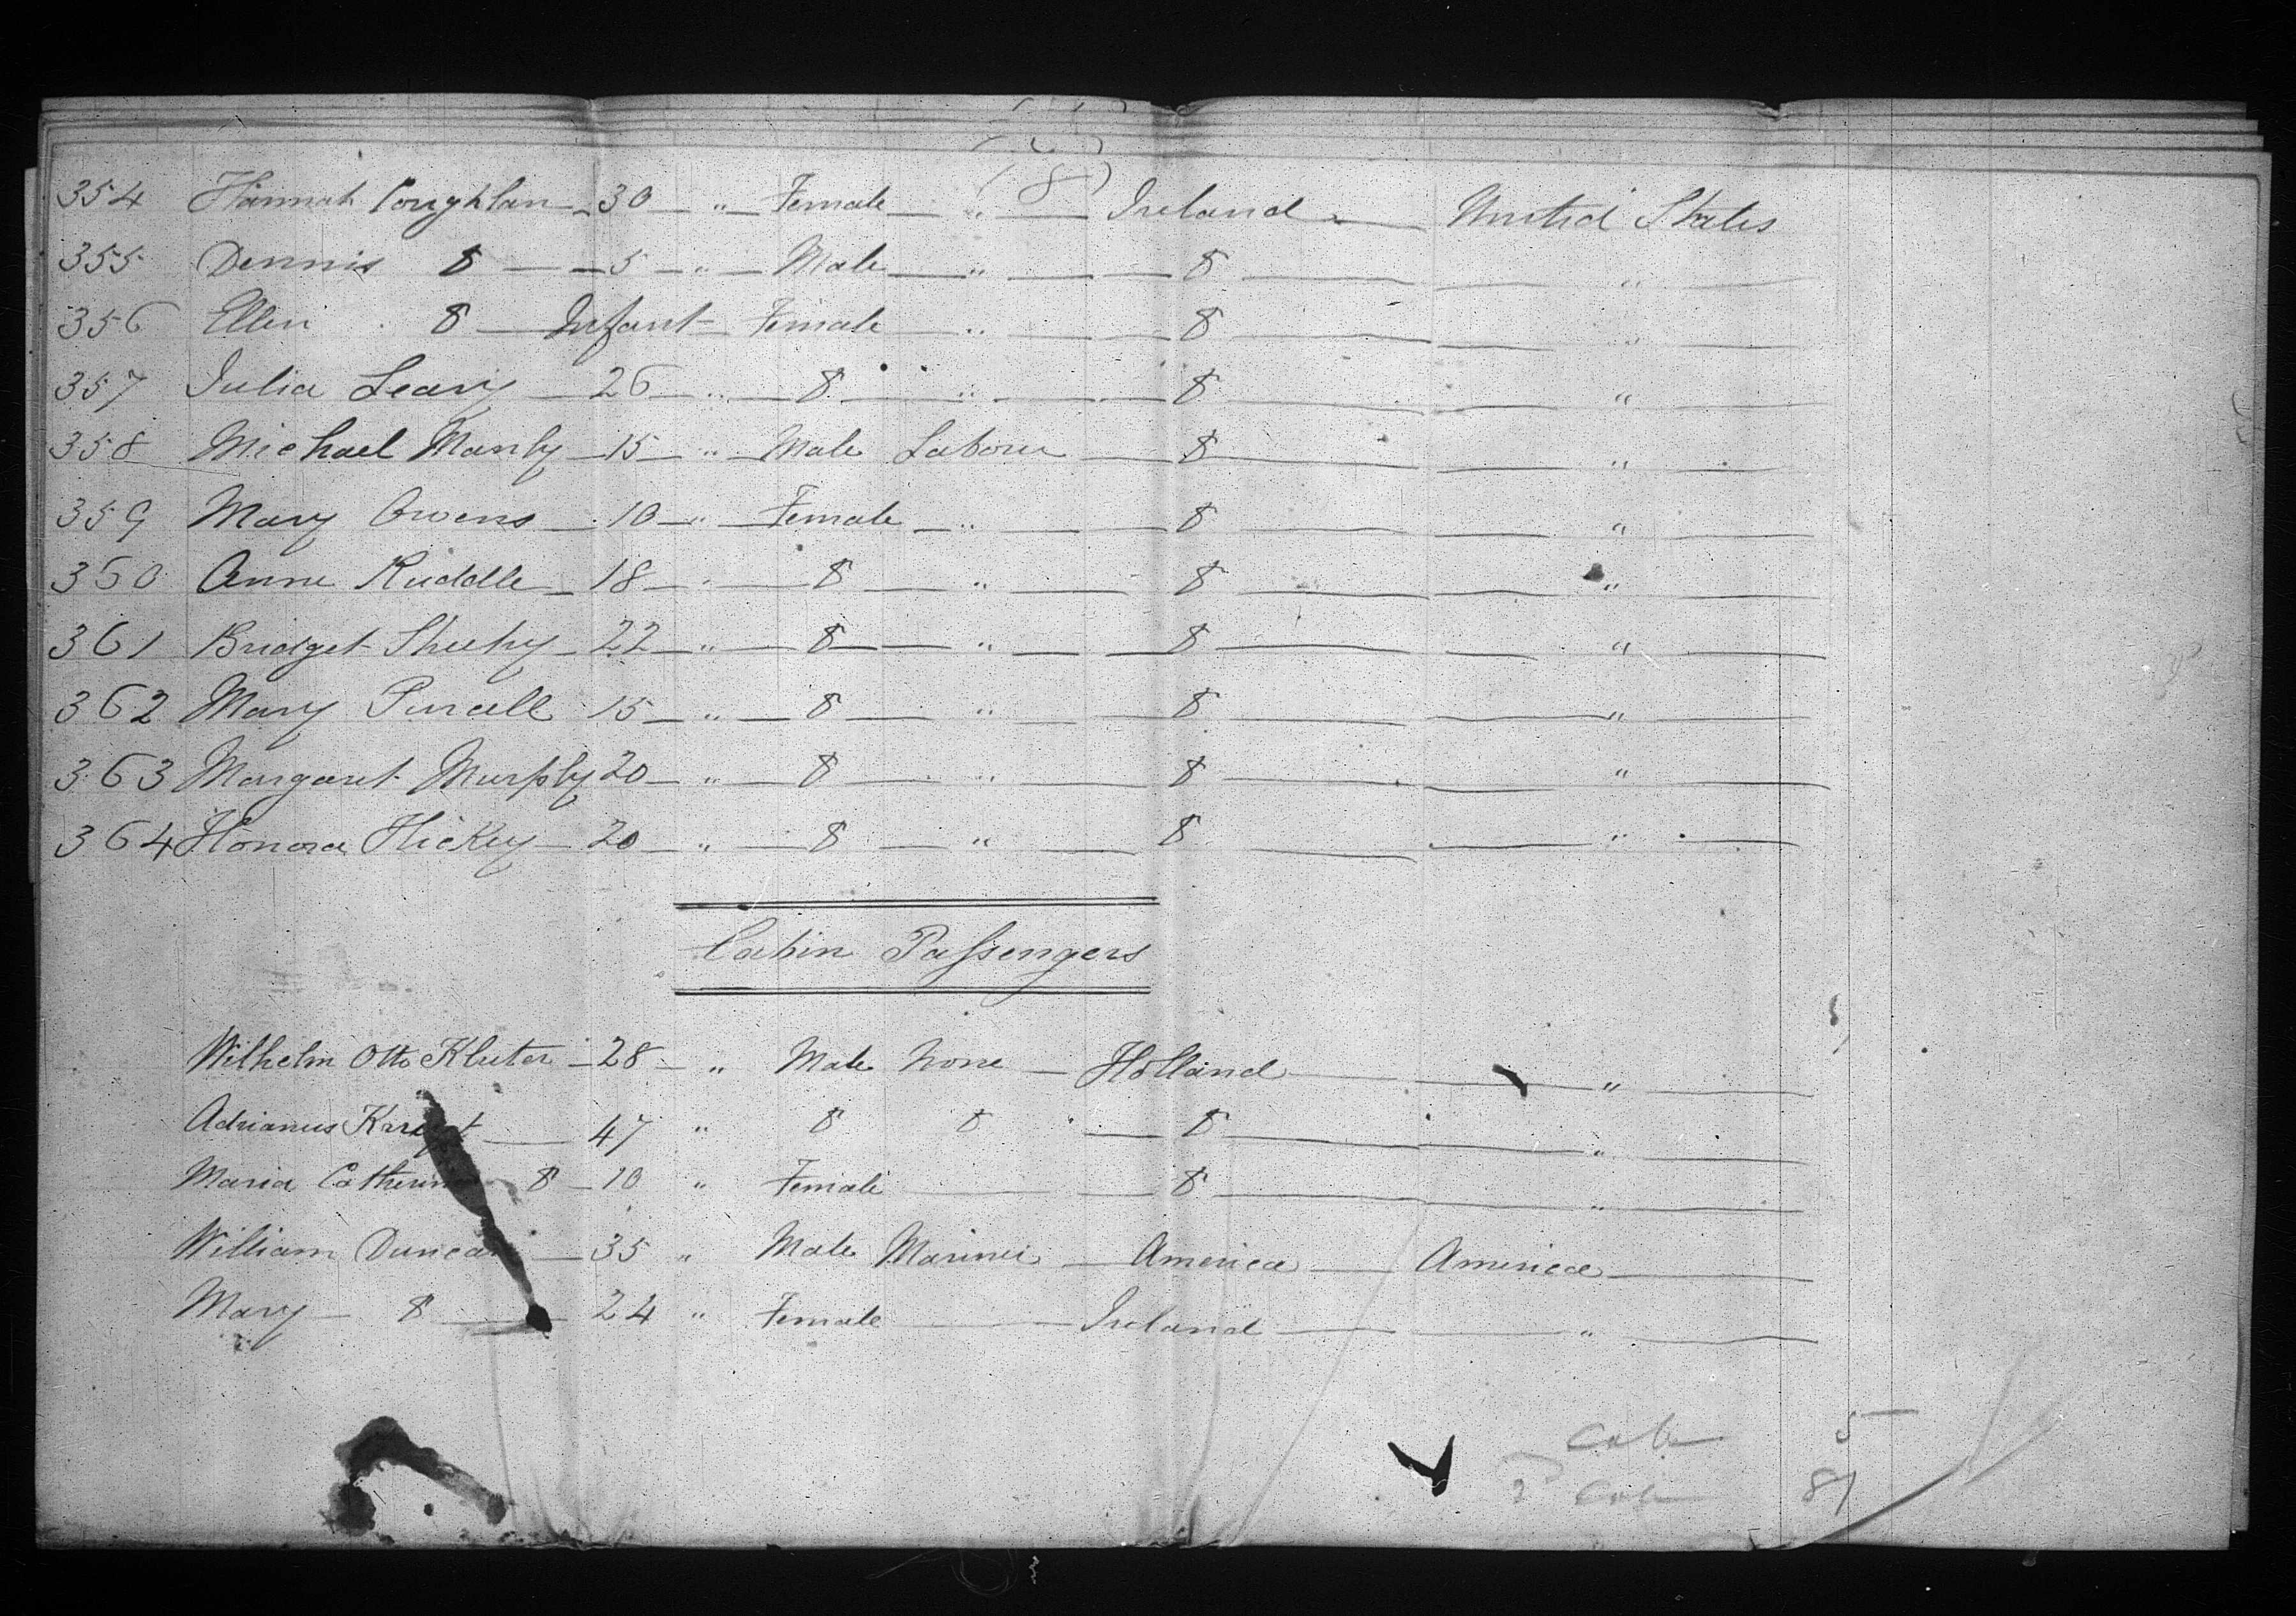 (8)
354 Hannah Coughlan 30 " Female " Ireland United States
355 Dennis 8 5 " Male " 8 "
356 Ellen 8 Infant Female " 8 "
357 Julia Leary 26 " 8 " 8 "
358 Michael Manly 15 " Male Labour 8 "
359 Mary Owens 10 " Female " 8 "
360 Anne Ruddle 18 " 8 " 8 "
361 Bridget Sheehy 22 " 8 " 8 "
362 Mary Purcell 15 " 8 " 8 "
363 Margaret Murphy 20 " 8 " 8 "
364 Honora Hickey 20 " 8 " 8 "
Cabin Passengers
Wilhelm Otto Kluter 28 " Male None Holland "
Adrianus 47 " 8 8 8 "
Maria Catherine 8 10 " Female 8 "
William Duncan 35 " Male Mariner America America
Mary 8 24 " Female Ireland "
5